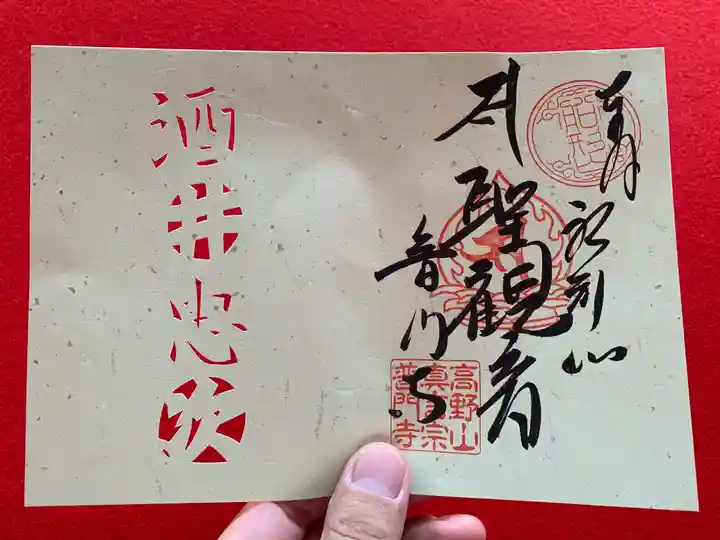 奉拝 船形山
聖観音
普門寺
高野山
真言宗
普門寺
酒井忠次